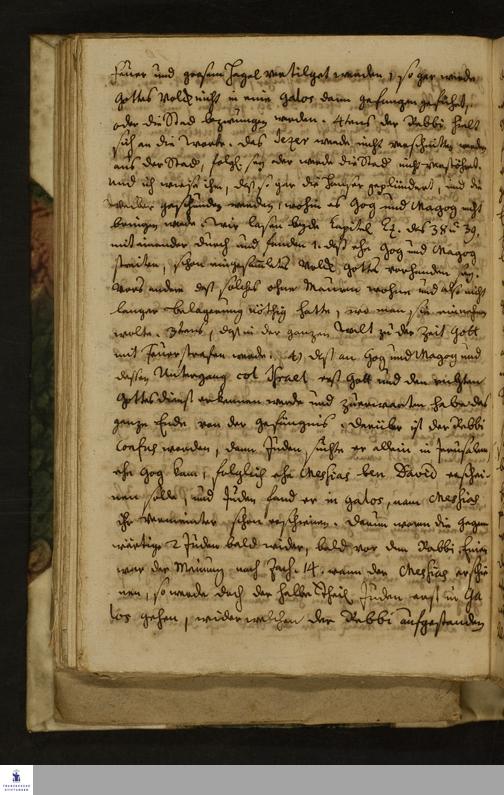 Feuer und grosem Hagel vertilget werden, so gar werde
Gottes Volck nicht in eine Galos dann gefangen geführet,
oder die Stad bezwungen werden. 4tens der Rabbi hielt
sich an die Worte. das Jezer werde nicht
aus der Stad, folgl. sey oder werde die Stad nicht verstöhret.
und ich wiese ihm, daß so gar die Häuser geplündert, und die
Weiber geschändet werden, wohin es Gog und Magog nicht
bringen werde. Wir lasen beyde Capitel Ez. des 38. u 39.
mit einander durch und funden 1. daß ehe Gog und Magog
streiten, schon eingesamletes Volck Gottes vorhanden sey.
Vors andere daß solches ohne Mauren wohne und also nicht
langer Belagerung nöthig hatte, wo man sie einnehmen
wolte. 3tens, daß in der ganzen Welt zu der Zeit Gott
mit Feuer strafen werde. 4) daß an Gog und Magog und
dessen Untergang col Israel erst Gott und den richtigen
Gottesdienst erkennen werde und zuerwarten habe das
ganze Ende von der Gefängnis. Darüber ist der Rabbi
confus worden, dann Juden suchte er allein in Jerusalem
ehe Gog kam, folglich ehe Messias ben David erschei-
nen solle, und Juden fand er in Galos, wenn Messias
ihr vermeinter schon erschienen. Darum waren die gegen
wärtige 2 Juden bald wider, bald vor dem Rabbi, Einer
war der Meinung nach Zach: 14. wann der Messias erschie
nen, so werde doch der halbe Theil Juden erst in Ga
los gehen, wider welchen der Rabbi aufgestanden
FRANCKESCHE
STIFTUNGEN